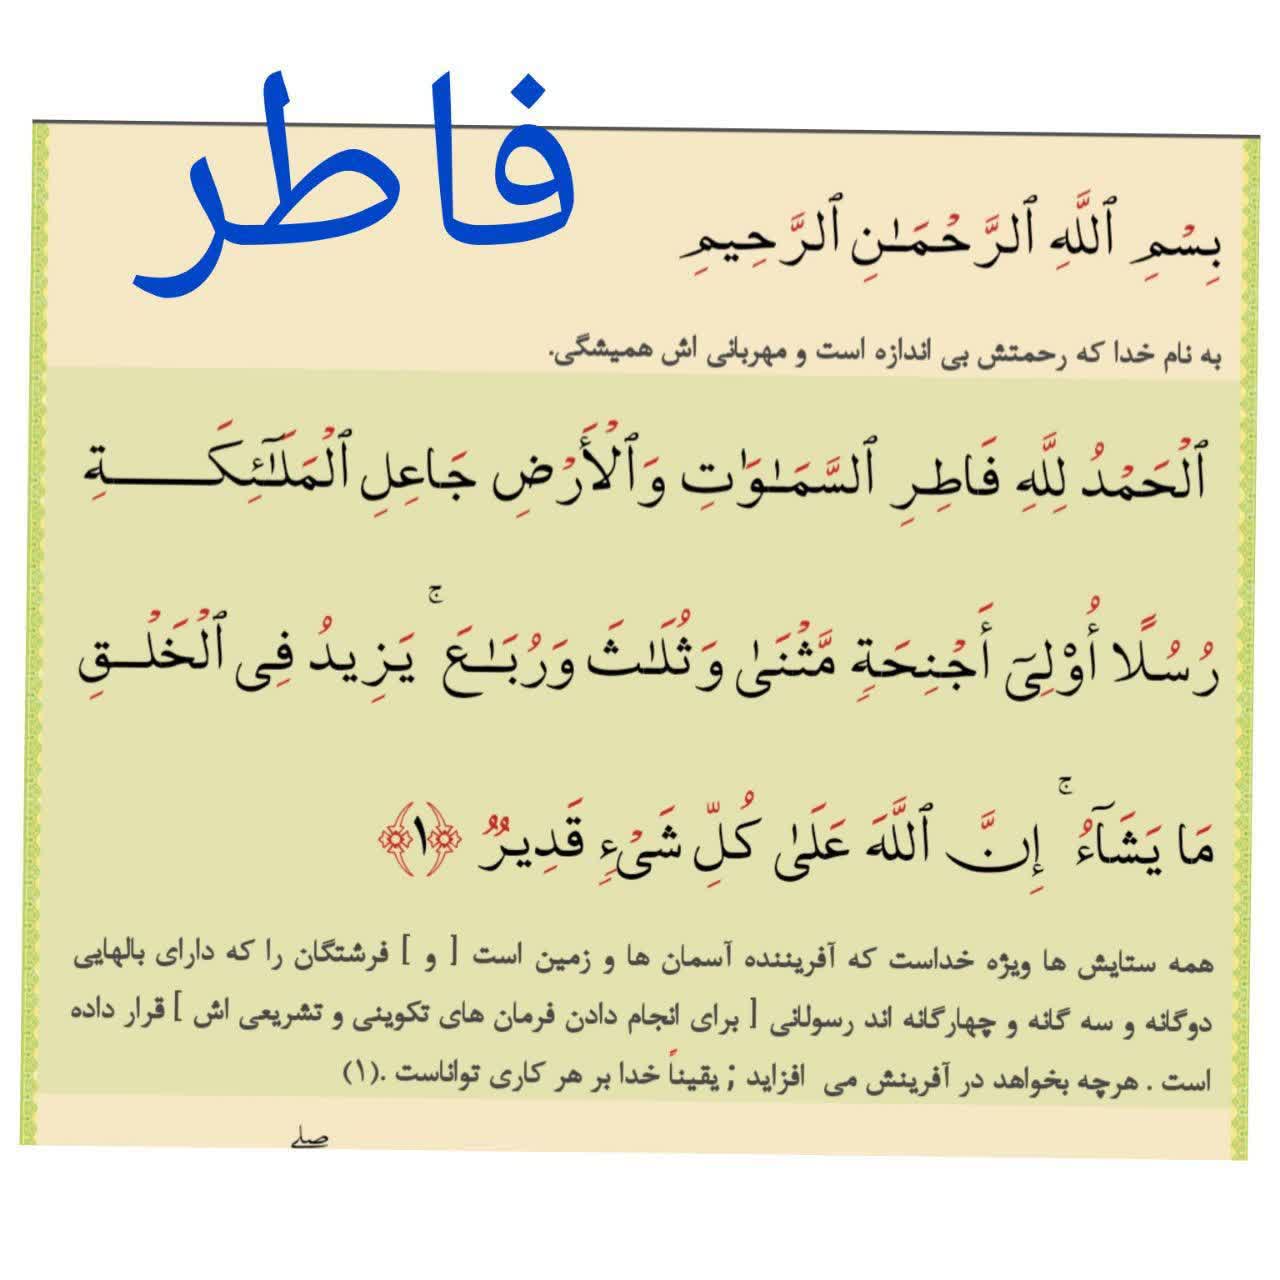 فاطر
بِسْمِ ٱللَّهِ ٱلرَّحْمَـٰنِ ٱلرَّحِيمِ
به نام خدا که رحمتش بی اندازه است و مهربانی اش همیشگی.
ٱلْحَمْدُ لِلَّهِ فَاطِرِ ٱلسَّمَـٰوَٰتِ وَٱلْأَرْضِ جَاعِلِ ٱلْمَلَـٰٓئِكَـــــةِ
رُسُلًا أُوْلِىٓ أَجْنِحَةٍ مَّثْنَىٰ وَثُلَـٰثَ وَرُبَـٰعَ ۚ يَزِيدُ فِى ٱلْخَلْـقِ
مَا يَشَآءُ ۚ إِنَّ ٱللَّهَ عَلَىٰ كُلِّ شَىْءٍ قَدِيرٌ ﴿١﴾
همه ستایش ها ویژه خداست که آفریننده آسمان ها و زمین است [ و ] فرشتگان را که دارای بالهایی
دوگانه و سه گانه و چهارگانه اند رسولانی [ برای انجام دادن فرمان های تکوینی و تشریعی اش ] قرار داده
است . هرچه بخواهد در آفرینش می افزاید ; یقیناً خدا بر هر کاری تواناست .(۱)
صلے